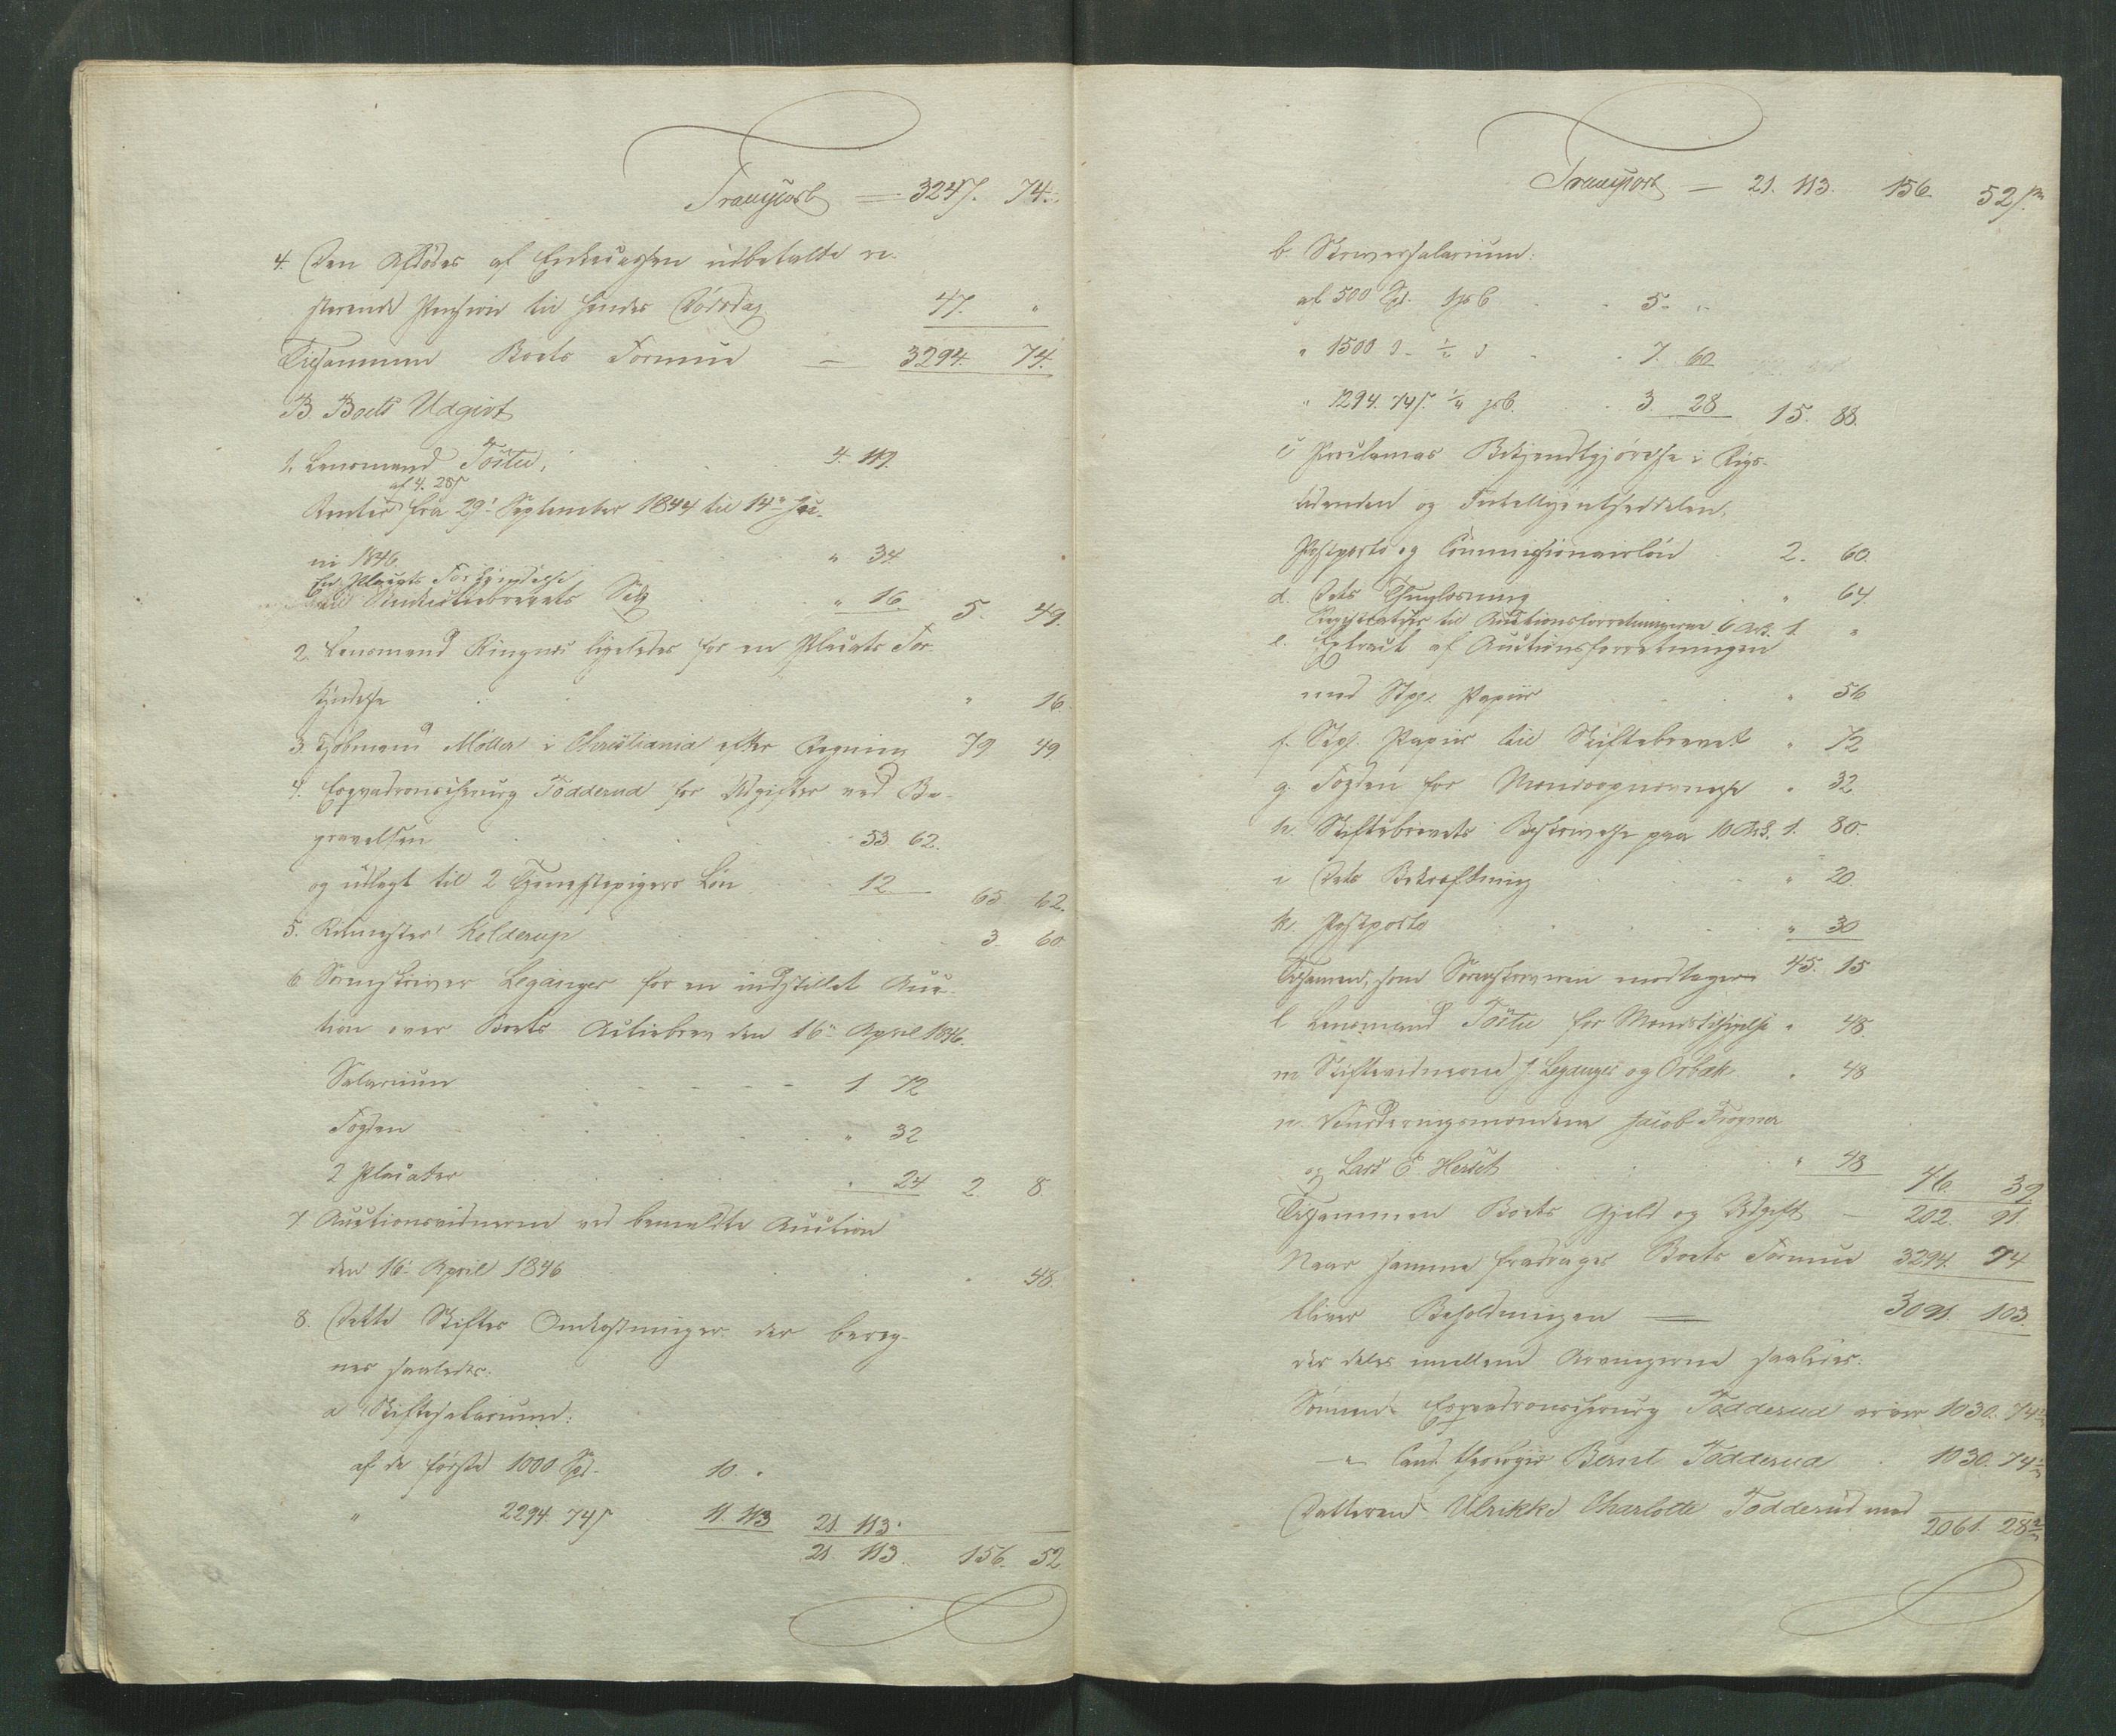 Transport = 3247. 74.
4. Den Afdødes af Enkecassen udbetalte re-
sterende Pension til hendes Dødsdag 47. "
Tilsammen Boets Formue = 3294. 74.
B. Boets Udgivt
1. Lensmand Töstie, 4. 119.
af 4. 28 s
Renter fra 29. September 1844 til 14de Ju-
ni 1846 " 34.
En Placats Forkyndelse
" 16. 5. 49.
2. Lensmand Ringnes ligeledes for en Placats For-
kyndelse " 16.
3. Kjøbmand Møller i Christiania efter Regning 79 49.
4. Esqvadronschirurg Tødderud for Udgifter ved Be-
gravelsen 53. 62.
og udlagt til 2 Tjenestepigers Løn 12 65. 62.
5. Ritmester Kolderup 3. 60
6. Sorenskriver Leganger for en indstillet Auc-
tion over Boets Actiebrev den 16de April 1846.
Salarium 1 72
Fogden " 32
2 Placater " 24 2. 8.
7. Auctionsvidnerne ved bemeldte Auction
den 16. April 1846 48.
8. Dette Skiftes Omkostninger der bereg-
nes saaledes:
a Skiftesalarium:
af de første 1000 Spd. 10. "
" 2294. 74 s 11. 113 21. 113.
21. 113. 156. 52
Transport — 21. 113. 156. 52 s.
b Skriversalarium:
af 500 Spd. 1 pC. 5. "
" 1500 d - ½ d 7. 60
" 1294. 74 s. ¼ pC. 3. 28 15. 88.
c Proclamas Bekjendtgjørelse i Rigs-
tidenden og Intelligentssedelen,
Postporto og Commissionairløn 2. 60.
d. Dets Thinglæsning " 64.
Registratur til Auctionsforretningerne 6 Ark. 1. "
e. Extract af Auctionsforretningen
med Stpl. Papiir " 56
f. Stpl. Papiir til Skiftebrevet " 72
g. Fogden for Mandsopnævnelse " 32
h. Skiftebrevets Beskrivelse paa 10 Ark. 1. 80.
i Dets Bekræftning " 20.
k. Postporto " 30
Tilsammen, som Sorenskriveren modtager 45. 15
l Lensmand Töstie for Mandstilsigelse " 48.
m Skiftevidnerne J. Leganger og Orbæk " 48
n. Vurderingsmændene Jacob Frogner
og Lars E. Herset " 48 46. 39
Tilsammen Boets Gjeld og Udgift — 202. 91.
Naar samme fradrages Boets Formue 3294. 74
bliver Beholdningen = 3091. 103.
der deles imellem Arvingerne saaledes:
Sønnen Esqvadronschirurg Tødderud arver 1030. 74
—"— Cand. theologie Bernt Tødderud 1030. 74
Datteren Ulrikke Charlotte Tødderud med
2061. 28